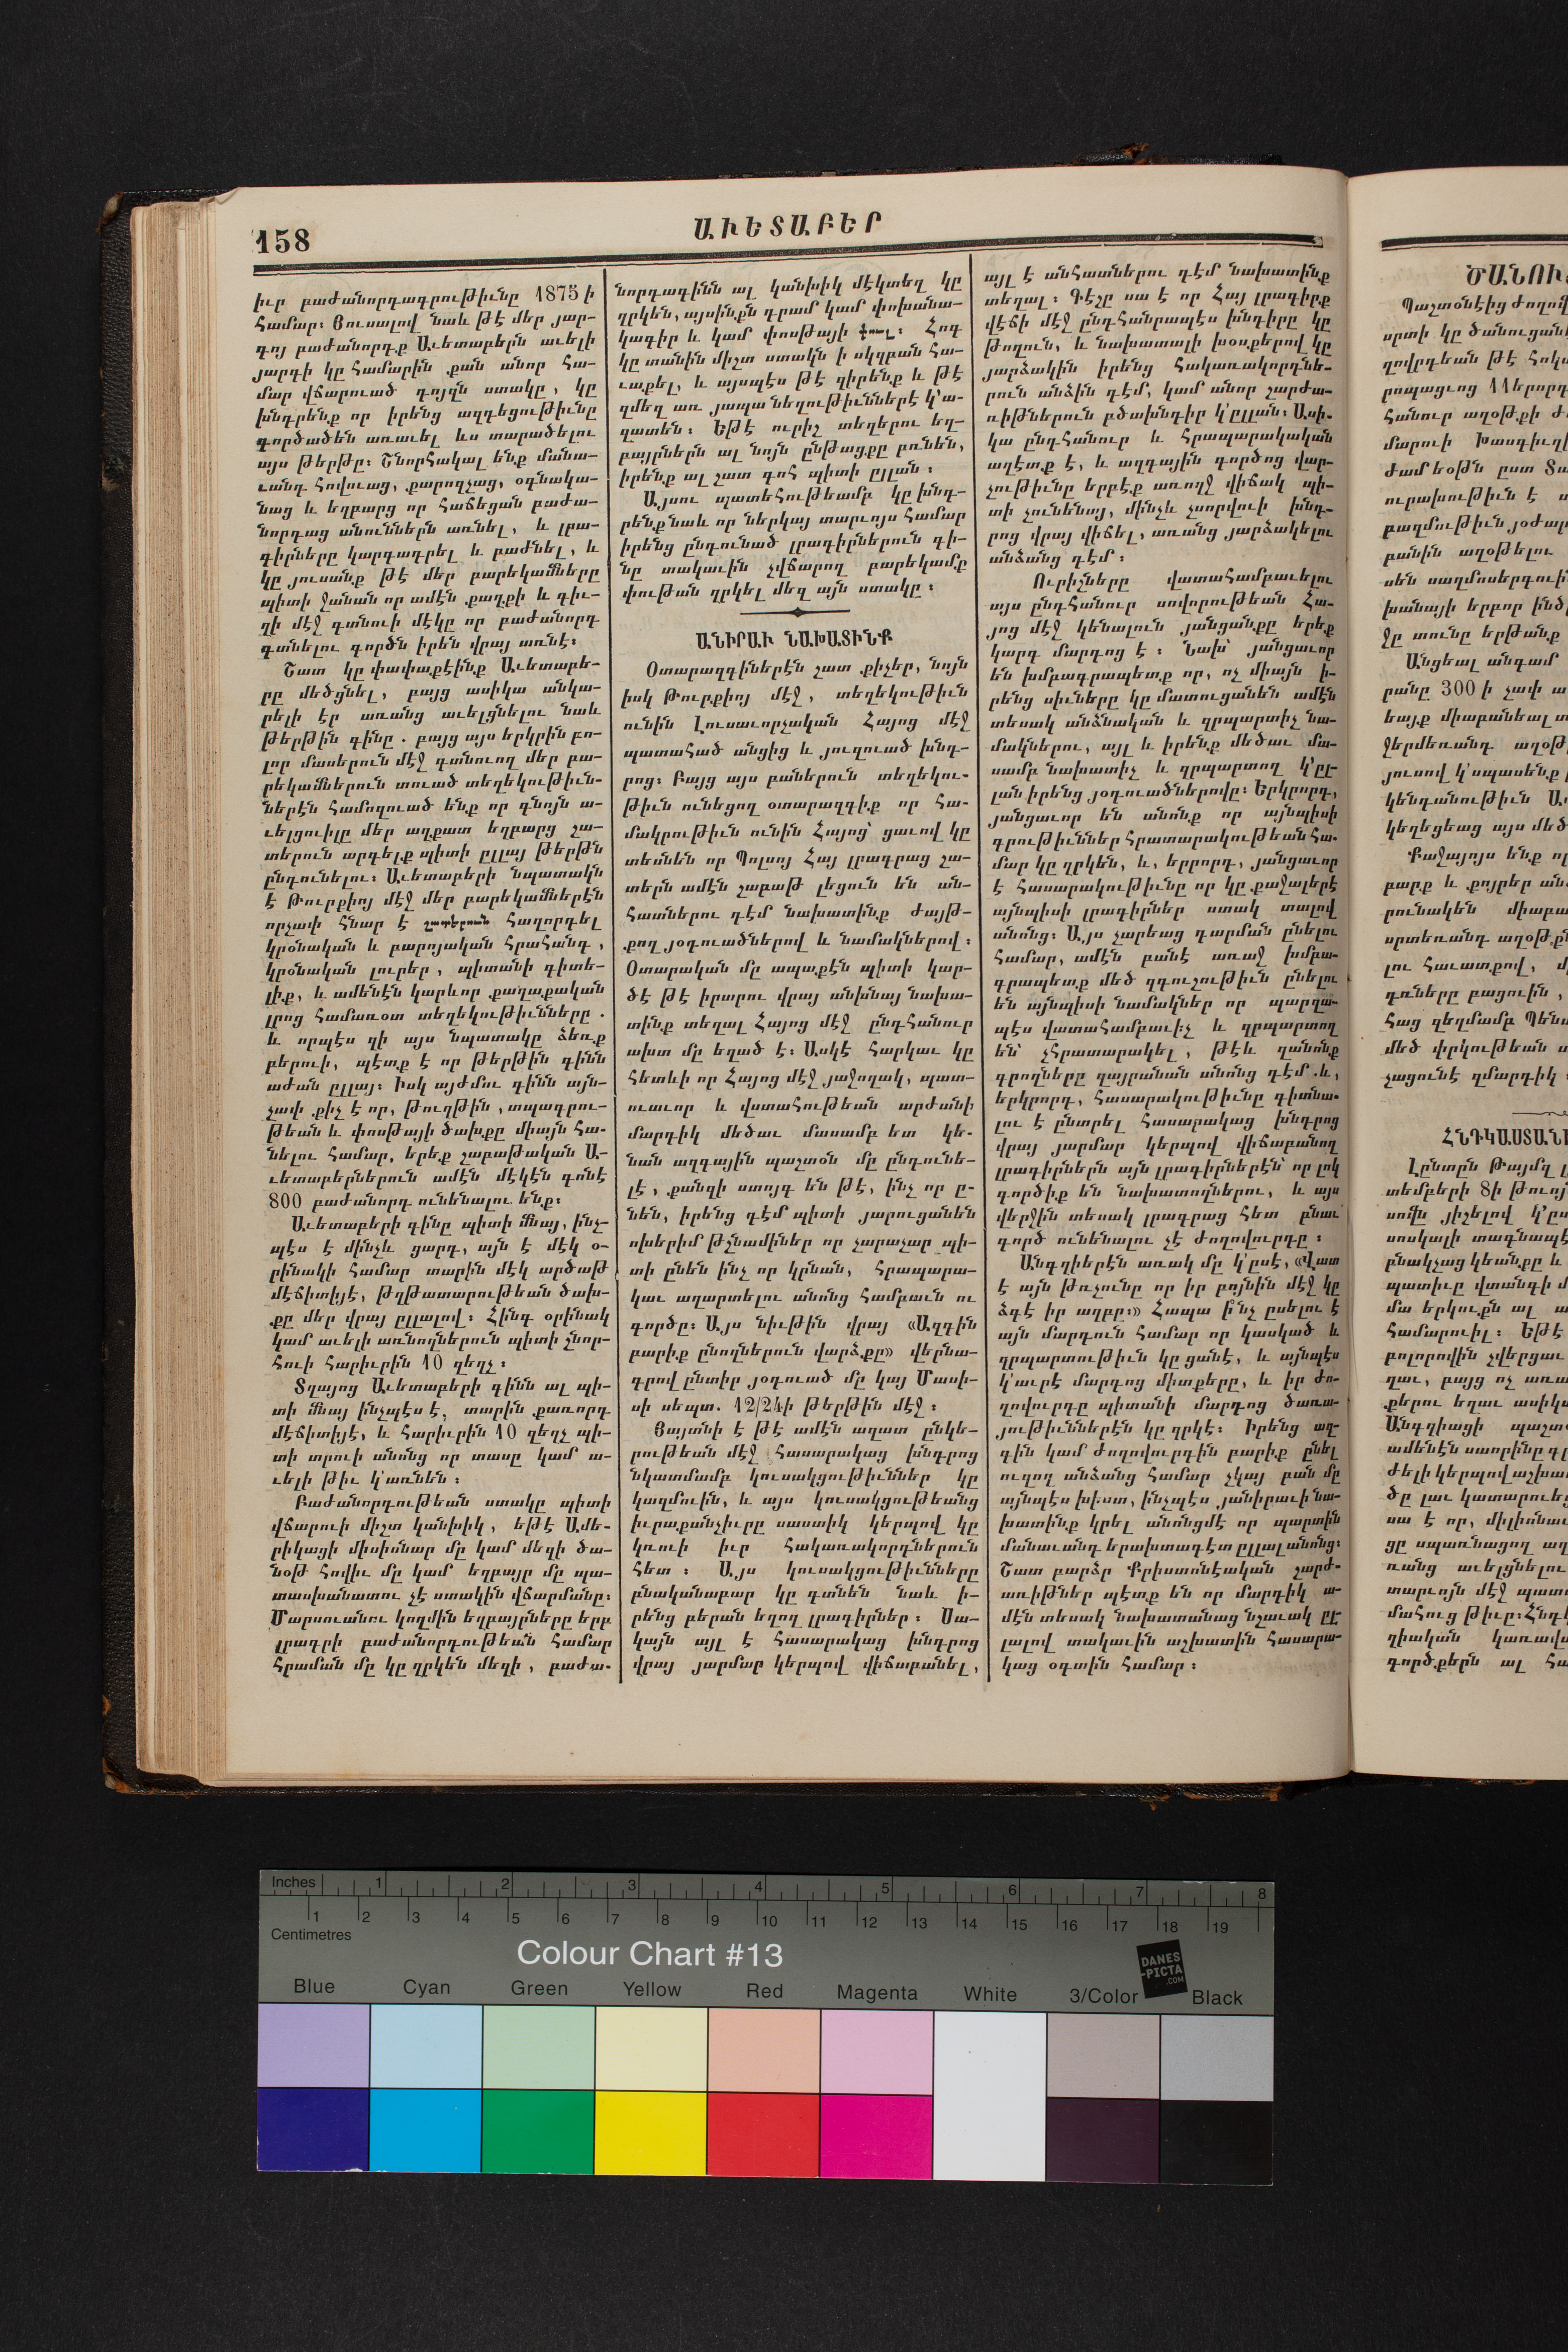 158
ԱՒԵՏԱԲԵՐ
իւր բաժանորդագրութիւնը 1875 ի
համար։ Յուսալով նաև թէ մեր յար-
գոյ բաժանորդք Աւետաբերն աւելի
յարգի կը համարին քան անոր հա-
մար վճարուած դոյզն ստակը, կը
խնդրենք որ իրենց ազդեցութիւնը
գործածեն առաւել ևս տարածելու
այս թերթը։ Շնորհակալ ենք մանա-
ւանդ հովուաց, քարոզչաց, օգնակա-
նաց և եղբարց որ հաճեցան բաժա-
նորդաց անուններն առնել, և լրա-
գիրները կարգադրել և բաժնել, և
կը յուսանք թէ մեր բարեկամները
պիտի ջանան որ ամէն քաղքի և գիւ-
ղի մէջ գտնուի մէկը որ բաժանորդ
գտնելու գործն իրեն վրայ առնէ։
Շատ կը փափաքէինք Աւետաբե-
րը մեծցնել, բայց ասիկա անկա-
րելի էր առանց աւելցնելու նաև
թերթին գինը . բայց այս երկրին բո-
լոր մասերուն մէջ գտնուող մեր բա-
րեկամներուն տուած տեղեկութիւն-
ներէն համոզուած ենք որ գնոյն ա-
ւելցուիլը մեր աղքատ եղբարց շա-
տերուն արգելք պիտի ըլլայ թերթն
ընդունելու։ Աւետաբերի նպատակն
է Թուրքիոյ մէջ մեր բարեկամներէն
որչափ հնար է շատերուն հաղորդել
կրօնական և բարոյական հրահանգ ,
կրօնական լուրեր , պիտանի գիտե-
լիք, և ամենէն կարևոր քաղաքական
լրոց համառօտ տեղեկութիւնները .
և որպէս զի այս նպատակը ձեռք
բերուի, պէտք է որ թերթին գինն
աժան ըլլայ։ Իսկ այժմու գինն այն-
չափ քիչ է որ, թուղթին , տպագրու-
թեան և փոսթայի ծախքը միայն հա-
նելու համար, երեք շաբաթական Ա-
ւետաբերներուն ամէն մէկէն գոնէ
800 բաժանորդ ունենալու ենք։
Աւետաբերի գինը պիտի մնայ, ինչ-
պէս է մինչև ցարդ, այն է մէկ օ-
րինակի համար տարին մէկ արծաթ
մէճիտիյէ, թղթատարութեան ծախ-
քը մեր վրայ ըլլալով։ Հինգ օրինակ
կամ աւելի առնողներուն պիտի շնոր-
հուի հարիւրին 10 զեղչ ։
Տղայոց Աւետաբերի գինն ալ պի-
տի մնայ ինչպէս է, տարին քառորդ
մէճիտիյէ, և հարիւրին 10 զեղչ պի-
տի տրուի անոնց որ տասը կամ ա-
ւելի թիւ կ՚առնեն ։
Բաժանորդութեան ստակը պիտի
վճարուի միշտ կանխիկ, եթէ Ամե-
րիկացի միսիոնար մը կամ մեզի ծա-
նօթ հովիւ մը կամ եղբայր մը պա-
տասխանատու չէ ստակին վճարմանը։
Մարսուանու կողմին եղբայրները երբ
լրագրի բաժանորդութեան համար
հրաման մը կը ղրկեն մեզի , բաժա-
նորդագինն ալ կանխիկ մէկտեղ կը
ղրկեն, այսինքն դրամ կամ փոխանա-
կագիր և կամ փոսթայի փուլ։ Հոգ
կը տանին միշտ ստակն ի սկզբան հա-
ւաքել, և այսպէս թէ զիրենք և թէ
զմեղ առ յապա նեղութիւններէ կ՚ա-
զատեն։ Եթէ ուրիշ տեղերու եղ-
բայրներն ալ նոյն ընթացքը բռնեն,
իրենք ալ շատ գոհ պիտի ըլլան ։
Այսու պատեհութեամբ կը խնդ-
րենք նաև որ ներկայ տարւոյս համար
իրենց ընդունած լրագիրներուն գի-
նը տակաւին չվճարող բարեկամք
փութան ղրկել մեզ այն ստակը ։
ԱՆԻՐԱՒ ՆԱԽԱՏԻՆՔ
Օտարազգիներէն շատ քիչեր, նոյն
իսկ Թուրքիոյ մէջ , տեղեկութիւն
ունին Լուսաւորչական Հայոց մէջ
պատահած անցից և յուզուած խնդ-
րոց։ Բայց այս բաներուն տեղեկու-
թիւն ունեցող օտարազգիք որ հա-
մակրութիւն ունին Հայոց՝ ցաւով կը
տեսնեն որ Պոլսոյ Հայ լրագրաց շա-
տերն ամէն շաբաթ լեցուն են ան-
հատներու դէմ նախատինք ժայթ-
քող յօդուածներով և նամակներով ։
Օտարական մը ապաքէն պիտի կար-
ծէ թէ իրարու վրայ անխնայ նախա-
տինք տեղալ Հայոց մէջ ընդհանուր
ախտ մը եղած է։ Ասկէ հարկաւ կը
հետևի որ Հայոց մէջ յաջողակ, պատ-
ուաւոր և վստահութեան արժանի
մարդիկ մեծաւ մասամբ ետ կե-
նան ազգային պաշտօն մը ընդունե-
լէ, քանզի ստոյգ են թէ, ինչ որ ը-
նեն, իրենց դէմ պիտի յարուցանեն
ոխերիմ թշնամիներ որ չարաչար պի-
տի ընեն ինչ որ կրնան, հրապարա-
կաւ աղարտելու անոնց համբաւն ու
գործը։ Այս նիւթին վրայ «Ազգին
բարիք ընողներուն վարձքը» վերնա-
գրով ընտիր յօդուած մը կայ Մասի-
սի սեպտ. 12/24ի թերթին մէջ ։
Յայտնի է թէ ամէն ազատ ընկե-
րութեան մէջ հասարակաց խնդրոց
նկատմամբ կուսակցութիւններ կը
կազմուին, և այս կուսակցութեանց
իւրաքանչիւրը սաստիկ կերպով կը
կռուի իւր հակառակորդներուն
հետ ։ Այս կուսակցութիւնները
բնականաբար կը գտնեն նաև ի-
րենց բերան եղող լրագիրներ ։ Սա-
կայն այլ է հասարակաց խնդրոց
վրայ յարմար կերպով վիճաբանել,
այլ է անհատներու դէմ նախատինք
տեղալ ։ Գէշը սա է որ Հայ լրագիրք
վէճի մէջ ընդհանրապէս խնդիրը կը
թողուն, և նախատալի խօսքերով կը
յարձակին իրենց հակառակորդնե-
րուն անձին դէմ, կամ անոր շարժա-
ռիթներուն բծախնդիր կ՚ըլլան։ Ասի-
կա ընդհանուր և հրապարակական
աղէտք է, և ազգային գործոց վար-
չութիւնը երբէք առողջ վիճակ պի-
տի չունենայ, մինչև չսորվուի խնդ-
րոց վրայ վիճել, առանց յարձակելու
անձանց դէմ ։
Ուրիշները վատահամբաւելու
այս ընդհանուր սովորութեան Հա-
յոց մէջ կենալուն յանցանքը երեք
կարգ մարդոց է ։ Նախ՝ յանցաւոր
են խմբագրապետք որ, ոչ միայն ի-
րենց սիւները կը մատուցանեն ամէն
տեսակ անձնական և զրպարտիչ նա-
մակներու, այլ և իրենք մեծաւ մա-
սամբ նախատիչ և զրպարտող կ՚ըլ-
լան իրենց յօդուածներովը։ Երկրորդ,
յանցաւոր են անոնք որ այնպիսի
գրութիւններ հրատարակութեան հա-
մար կը ղրկեն, և, երրորդ, յանցաւոր
է հասարակութիւնը որ կը քաջալերէ
այնպիսի լրագիրներ ստակ տալով
անոնց։ Այս չարեաց դարման ընելու
համար, ամէն բանէ առաջ խմբա-
գրապետք մեծ զգուշութիւն ընելու
են այնպիսի նամակներ որ պարզա-
պէս վատահամբաւիչ և զրպարտող
են՝ չհրատարակել, թէև զանոնք
գրողները զայրանան անոնց դէմ. և,
երկրորդ, հասարակութիւնը գիտնա-
լու է ընտրել հասարակաց խնդրոց
վրայ յարմար կերպով վիճաբանող
լրագիրներն այն լրագիրներէն՝ որ լոկ
գործիք են նախատողներու, և այս
վերջին տեսակ լրագրաց հետ բնաւ
գործ ունենալու չէ ժողովուրդը ։
Անգղիերէն առակ մը կ՚ըսէ, «Վատ
է այն թռչունը որ իր բոյնին մէջ կը
ձգէ իր աղբը։» Հապա ի՞նչ ըսելու է
այն մարդուն համար որ կասկած և
զրպարտութիւն կը ցանէ, և այնպէս
կ՚աւրէ մարդոց միտքերը, և իր ժո-
ղովուրդը պիտանի մարդոց ծառա-
յութիւններէն կը զրկէ։ Իրենց ազ-
գին կամ ժողովուրդին բարիք ընել
ուզող անձանց համար չկայ բան մը
այնպէս խիստ, ինչպէս յանիրաւի նա-
խատինք կրել անոնցմէ որ պարտին
մանաւանդ երախտագէտ ըլլալ անոնց։
Շատ բարձր Քրիստոնէական շարժ-
առիթներ պէտք են որ մարդիկ ա-
մէն տեսակ նախատանաց նշաւակ ըլ-
լալով տակաւին աշխատին հասարա-
կաց օգտին համար ։
Պաշտօնէից ժողով
սրտի կը ծանուցանե
ղովրդեան թէ հոկտ
հանուր աղօթքի ժ
ուրախութիւն է
բանին աղօթելու
Անցեալ անգամ
րանը 300 ի չափ ա
մեծ փրկութեան
ՀՆԴԿԱՍՏԱՆԻ
տեմբերի 8ի Թուոյ
Inches 1 2 3 4 5 6 7 8
1 2 3 4 5 6 7 8 9 10 11 12 13 14 15 16 17 18 19
Centimetres
Colour Chart #13
DANES
-PICTA
.COM
Blue Cyan Green Yellow Red Magenta White 3/Color Black